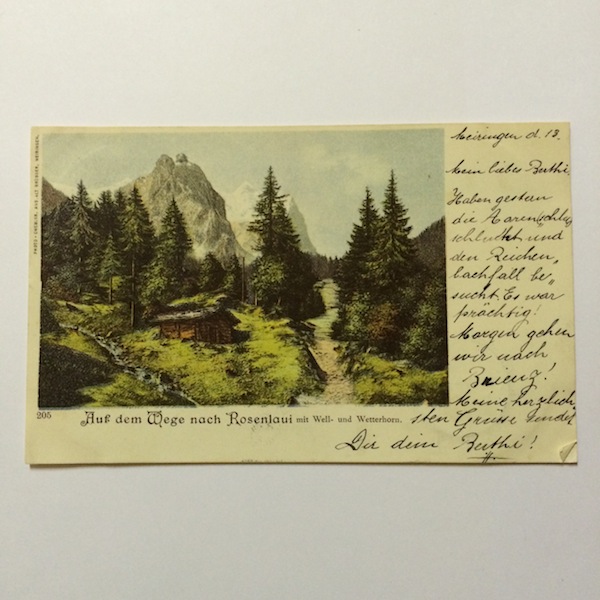 Meiringen d. 13.
Mein liebes Berthi,
Haben gestern
die Aarenschlug
schlucht und
den Reichen„
bachfall be„
sucht. Es war
prächtig!
Morgen gehen
wir nach
Brienz!
Meine herzlich
sten Grüsse sendet
Dir dein Berthi!
205
Auf dem Wege nach Rosenlaui mit Well- und Wetterhorn.